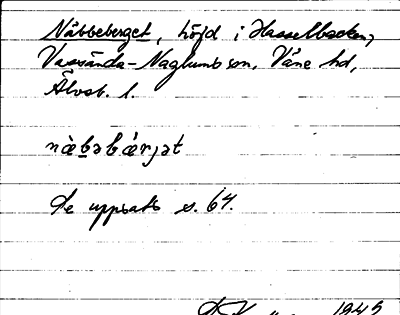 Nåbbeberget, höjd i Hasselbacken,
Vassända-Naglums sn, Väne hd,
Älvsb. l.
nàb̲əbǽrjət
Se uppsats s. 64.
1942